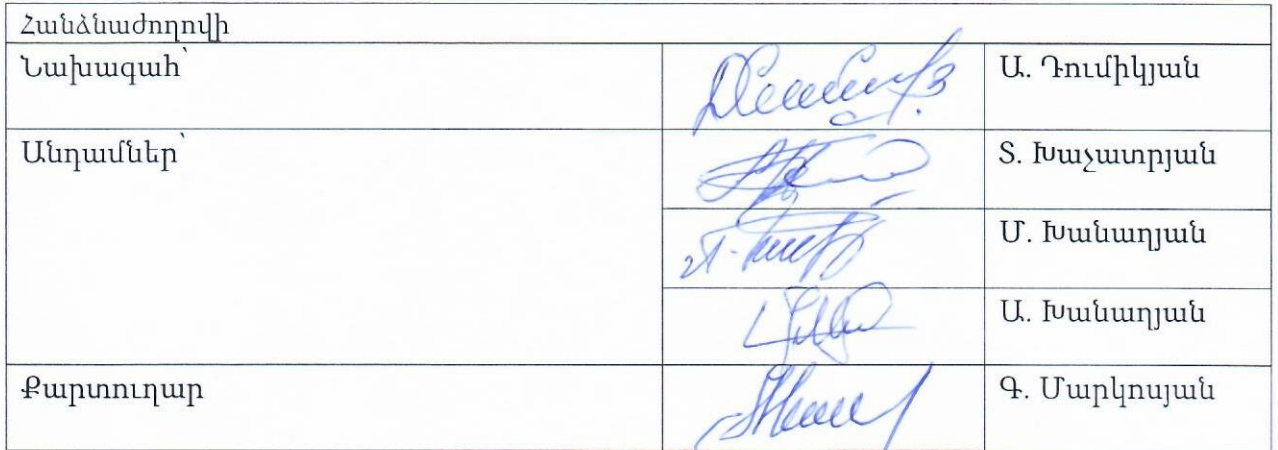 Հանձնաժողովի
Նախագահ՝ Ա. Դումիկյան
Անդամներ՝ Տ. Խաչատրյան
Մ. Խանաղյան
Ա. Խանաղյան
Քարտուղար Գ. Մարկոսյան